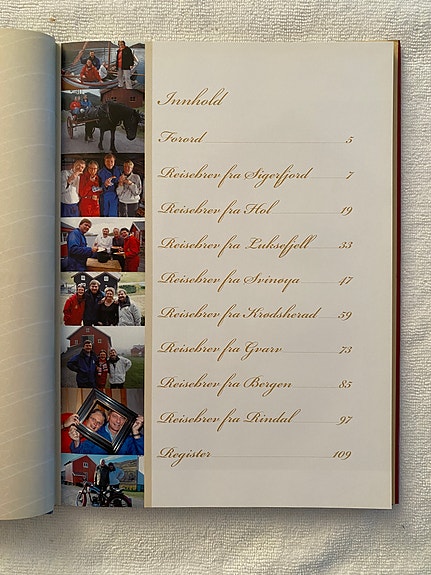 Innhold
Forord 5
Reisebrev fra Sigerfjord 7
Reisebrev fra Hol 19
Reisebrev fra Luksefjell 33
Reisebrev fra Svinøya 47
Reisebrev fra Krødsherad 59
Reisebrev fra Gvarv 73
Reisebrev fra Bergen 85
Reisebrev fra Rindal 97
Register 109